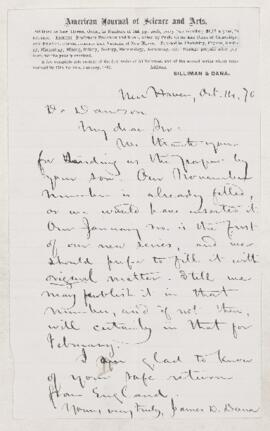 American Journal of Science and Arts.
SILLIMAN & DANA.
New Haven, Oct. 14, 70
Dr Dawson
My dear Sir:
We thank you
for sending us the paper by
your son. Our November
number is already filled,
or we would have inserted it
Our January no. is the first
of our new series, and we
should prefer to fill it with
original matter. Still we
may publish it in that
number, and if not then,
will certainly in that for
February.
I am glad to know
of your safe return
from England
Yours very truly, James D. Dana